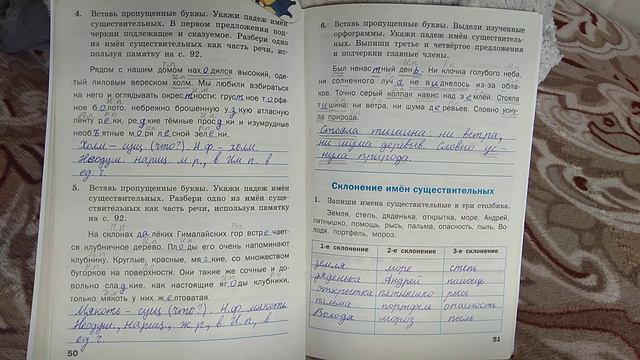 4. Вставь пропущенные буквы. Укажи падеж имён
существительных. В первом предложении под-
черкни подлежащее и сказуемое. Разбери одно
из имён существительных как часть речи, ис-
пользуя памятку на с. 92.
Рядом с нашим домом находился высокий, оде-
тый лиловым вереском холм. Мы любили взбираться
на него и оглядывать окрестности: грустное торфя-
ное болото, небрежно брошенную узкую атласную
ленту реки, редкие тёмные просёлки и изумрудные
необъятные моря лесной зелени.
Холм – сущ (что?). Н.ф – холм.
Неодуш. нариц. м.р., в Им п. в
ед. ч.
5. Вставь пропущенные буквы. Укажи падеж имён
существительных. Разбери одно из имён суще-
ствительных как часть речи, используя памятку
на с. 92.
На склонах далёких Гималайских гор встречает-
ся клубничное дерево. Плоды его очень напоминают
клубнику. Круглые, красные, мягкие, со множеством
бугорков на поверхности. Они такие же сочные и до-
вольно сладкие, как настоящие ягоды клубники,
только мякоть у них желтоватая.
Мякоть – сущ (что?). Н.ф мякоть
Неодуш., нариц., ж.р., в И.п., в
ед. ч.
50
6. Вставь пропущенные буквы. Выдели изученные
орфограммы. Укажи падеж имён существитель-
ных. Выпиши третье и четвёртое предложения
и подчеркни главные члены.
Был ненастный день. Ни клочка голубого неба,
ни солнечного луча не виднелось из-за обла-
ков. Точно серый колпак навис над землёй. Стояла
тишина: ни ветра, ни шума деревьев. Словно усну-
ла природа.
Стояла тишина: ни ветра,
ни шума деревьев. Словно ус-
нула природа.
Склонение имён существительных
1. Запиши имена существительные в три столбика.
Земля, степь, дяденька, открытка, море, Андрей,
пятнышко, помощь, рысь, пальма, опасность, пыль, Во-
лодя, портфель, мороз.
1-е склонение 2-е склонение 3-е склонение
земля море степь
дяденька Андрей помощь
открытка пятнышко рысь
пальма портфель опасность
Володя мороз пыль
51